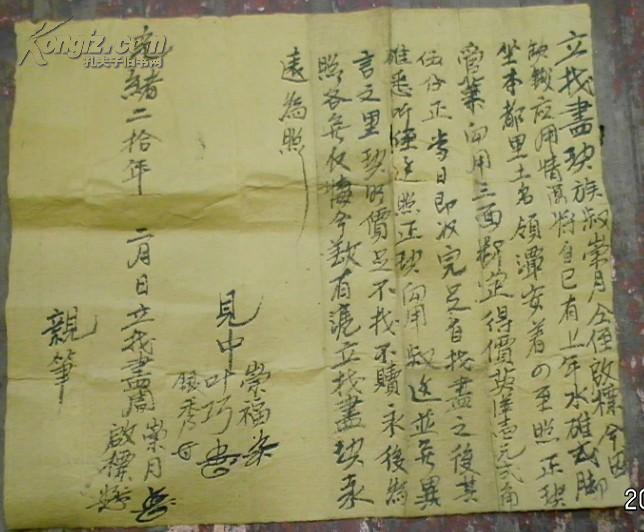 立找盡契族叔崇月仝侄啟標今因
缺錢应用情愿將自己有上年水碓弍脚
坐本都里土名領潭安着四至照正契
管業向用三面断定得價英洋壹元弍角
伍仔正当日即收完足自找盡之後其
碓悉听侄照正契向用叔边並無異
言之里契明價足不找不贖永後為
照各無反悔今欲有憑立找盡契永
遠為照
見中 崇福
叶巧
銀秀
光緒二拾年 二月 日立找盡周 崇月
啟標
親筆
Kongfz.com
孔夫子旧书网
20